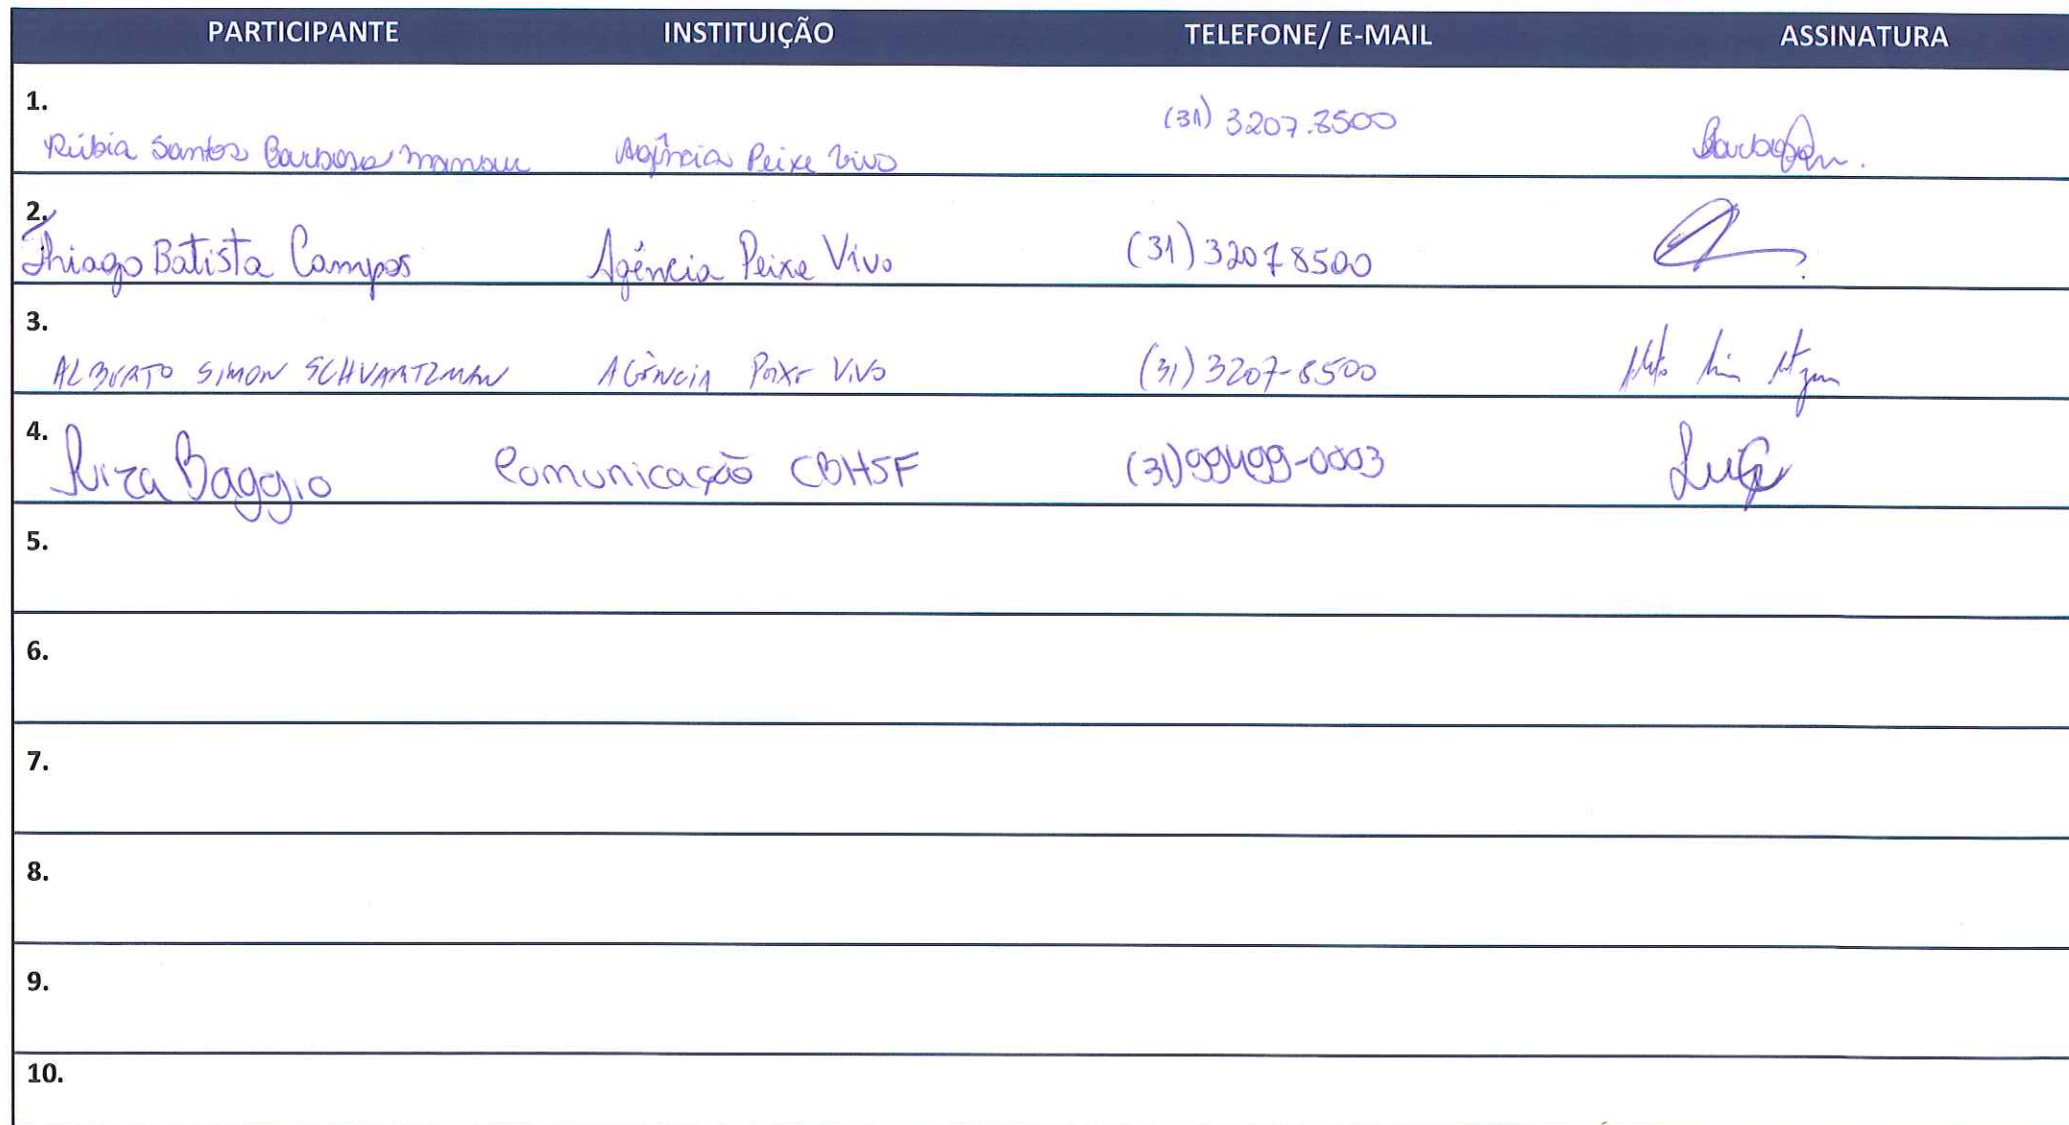 PARTICIPANTE INSTITUIÇÃO TELEFONE/ E-MAIL ASSINATURA
1.
Rúbia Santos Barbosa Agência Peixe Vivo (31) 3207.8500
2.
Thiago Batista Campos Agência Peixe Vivo (31) 32078500
3.
ALBERTO SIMON SCHVARTZMAN AGÊNCIA PEIXE VIVO (31) 3207-8500
4.
Luiza Baggio Comunicação CBHSF (31)99499-0003 Luiza
5.
6.
7.
8.
9.
10.